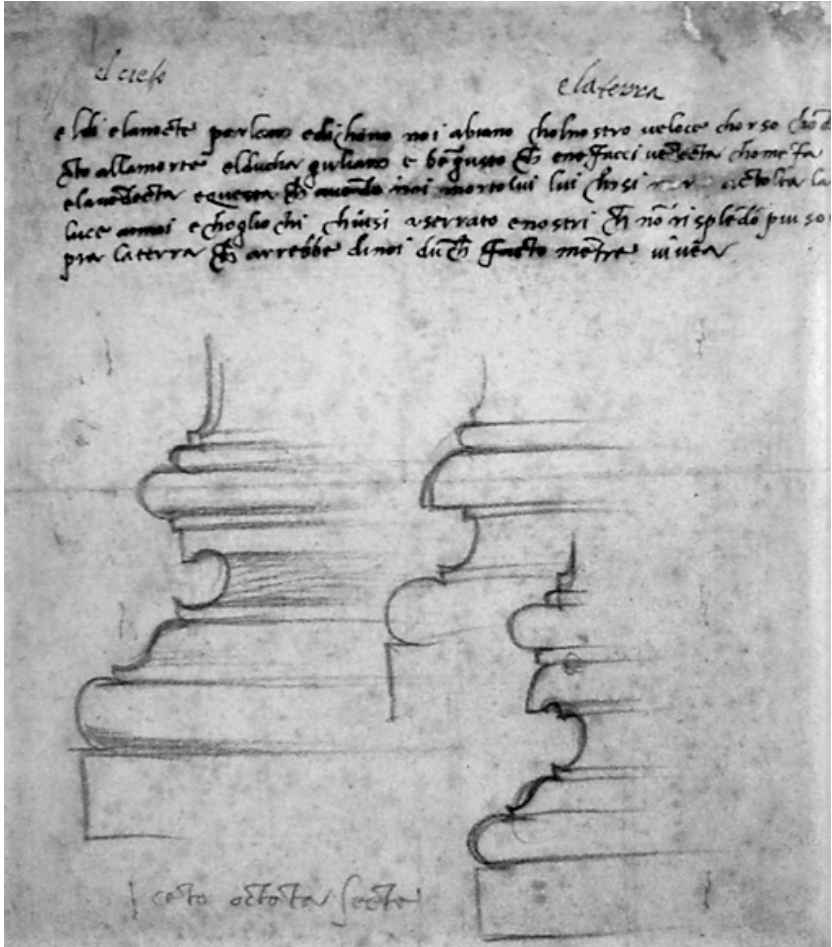 el cielo e la terra
el di e la nocte parlano e dichono noi abiano chol nostro veloce chorso cho
cto alla morte el ducha guliano e be gusto che e ne facci vedecta chome fa
e la vedecta e questa che avendo noi morto lui lui chosi morto a tolta la
luce a noi e chogli ochi chiusi a serrato e nostri che no rispledo piu so
pra la terra che arrebbe di noi duche facto metre vivea
ceto octota secte